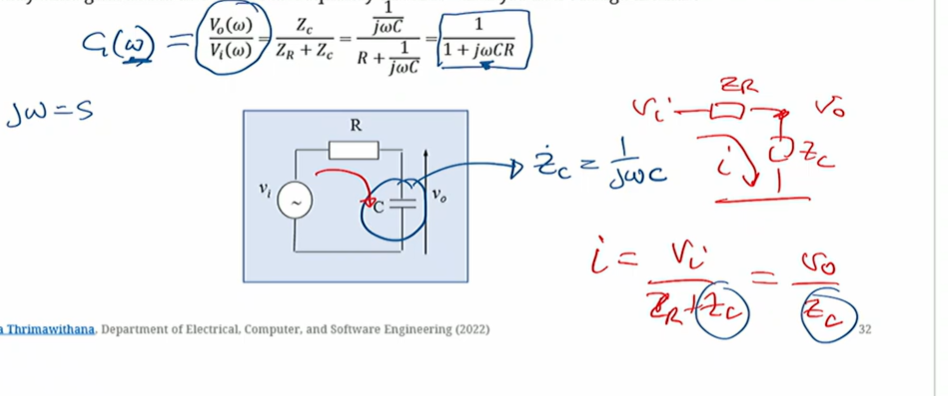 G(ω) = Vₒ(ω)/Vᵢ(ω) = Z_c/(Z_R + Z_c) = (1/jωC)/(R + 1/jωC) = 1/(1 + jωCR)
jω = S
Z_R
Vᵢ Vₒ
i Z_c
R
vᵢ ~ C vₒ
Ż_c = 1/jωC
i = Vᵢ/(Z_R + Z_c) = vₒ/Z_c
Thrimawithana, Department of Electrical, Computer, and Software Engineering (2022) 32